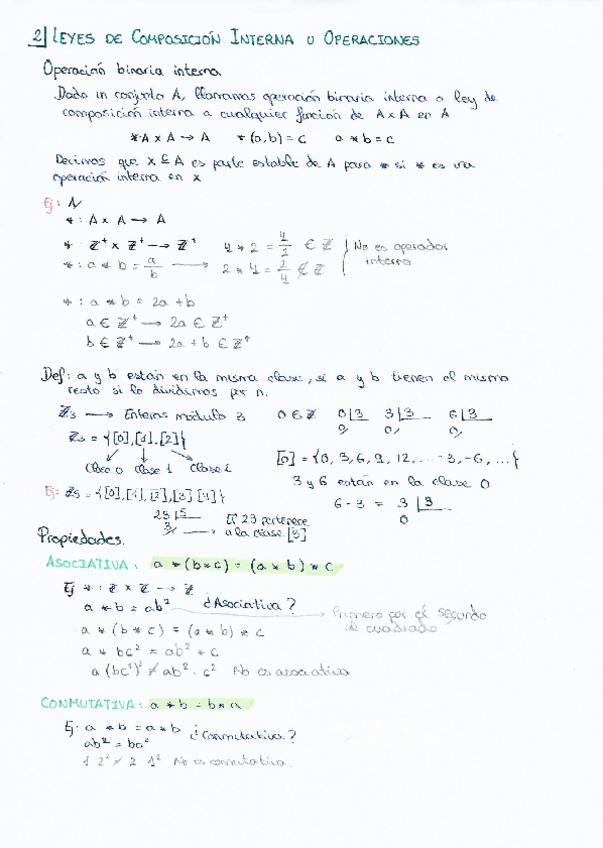 2| LEYES DE COMPOSICIÓN INTERNA U OPERACIONES
Operación binaria interna.
Dado un conjunto A, llamamos operación binaria interna o ley de
composición interna a cualquier función de A x A en A
*: A x A → A    *(a,b) = c    a * b = c
Decimos que x ⊆ A es parte estable de A para * si * es una
operación interna en x
Ej: N
* : A x A → A
* : Z⁺ x Z⁺ → Z⁺    4 * 2 = 4/2 ∈ Z } No es operador
* : a * b = a/b → 2 * 4 = 2/4 ∉ Z } interno
* : a * b = 2a + b
a ∈ Z⁺ → 2a ∈ Z⁺
b ∈ Z⁺ → 2a + b ∈ Z⁺
Def: a y b están en la misma clase, si a y b tienen el mismo
resto si lo dividimos por n.
Z₃ → Enteros módulo 3    0 ∈ Z    0|3    3|3    6|3
0    0    0
Z₃ = {[0], [1], [2]}
[0] = {0, 3, 6, 9, 12, ... -3, -6, ...}
Clase 0    clase 1    clase 2
3 y 6 están en la clase 0
Ej: Z₅ = {[0], [1], [2], [3] [4]}    6 - 3 = 3|3
0
23|5    El 23 pertenece
3 → a la clase [3]
Propiedades.
ASOCIATIVA: a * (b * c) = (a * b) * c
Ej *: Z x Z → Z
a * b = ab²    ¿Asociativa?
Primero por el segundo
al cuadrado
a * (b * c) = (a * b) * c
a * bc² = ab² * c
a (bc²)² ≠ ab² · c²  No es asociativa
CONMUTATIVA: a * b = b * a
Ej: a * b = a * b    ¿Conmutativa?
ab² = ba²
1 2² ≠ 2 1²  No es conmutativa.